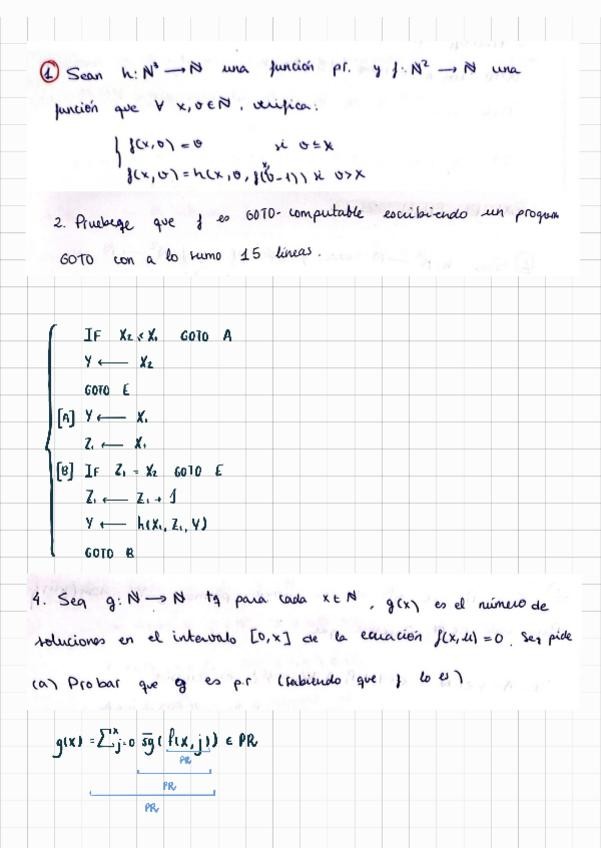 ① Sean h: N³ → N una función pr. y f: N² → N una
función que ∀ x, v ∈ N, verifica:
{ f(x,v) = v si v ≤ x
f(x,v) = h(x, v, f(x, v-1)) si v > x
2. Pruebese que f es GOTO-computable escribiendo un program
GOTO con a lo sumo 15 líneas.
IF X₂ < X₁ GOTO A
Y ← X₂
GOTO E
[A] Y ← X₁
Z₁ ← X₁
[B] IF Z₁ = X₂ GOTO E
Z₁ ← Z₁ + 1
Y ← h(X₁, Z₁, Y)
GOTO B
4. Sea g: N → N tq para cada x ∈ N, g(x) es el número de
soluciones en el intervalo [0,x] de la ecuación f(x,u) = 0. Se pide
(a) Probar que g es p.r (sabiendo que f lo es)
g(x) = Σˣj=0 s̅g̅(f(x,j)) ∈ PR
PR
PR
PR